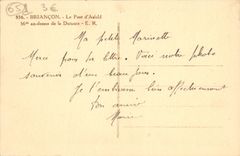 651 3€
536. - BRIANÇON. - Le Pont d'Asfeld
56m au-dessus de la Durance - E. R.
Ma petite Marinette
Merci pour ta lettre. Voici notre photo
souvenir d'un beau jour.
Je t'embrasse bien affectueusement
Ton amie